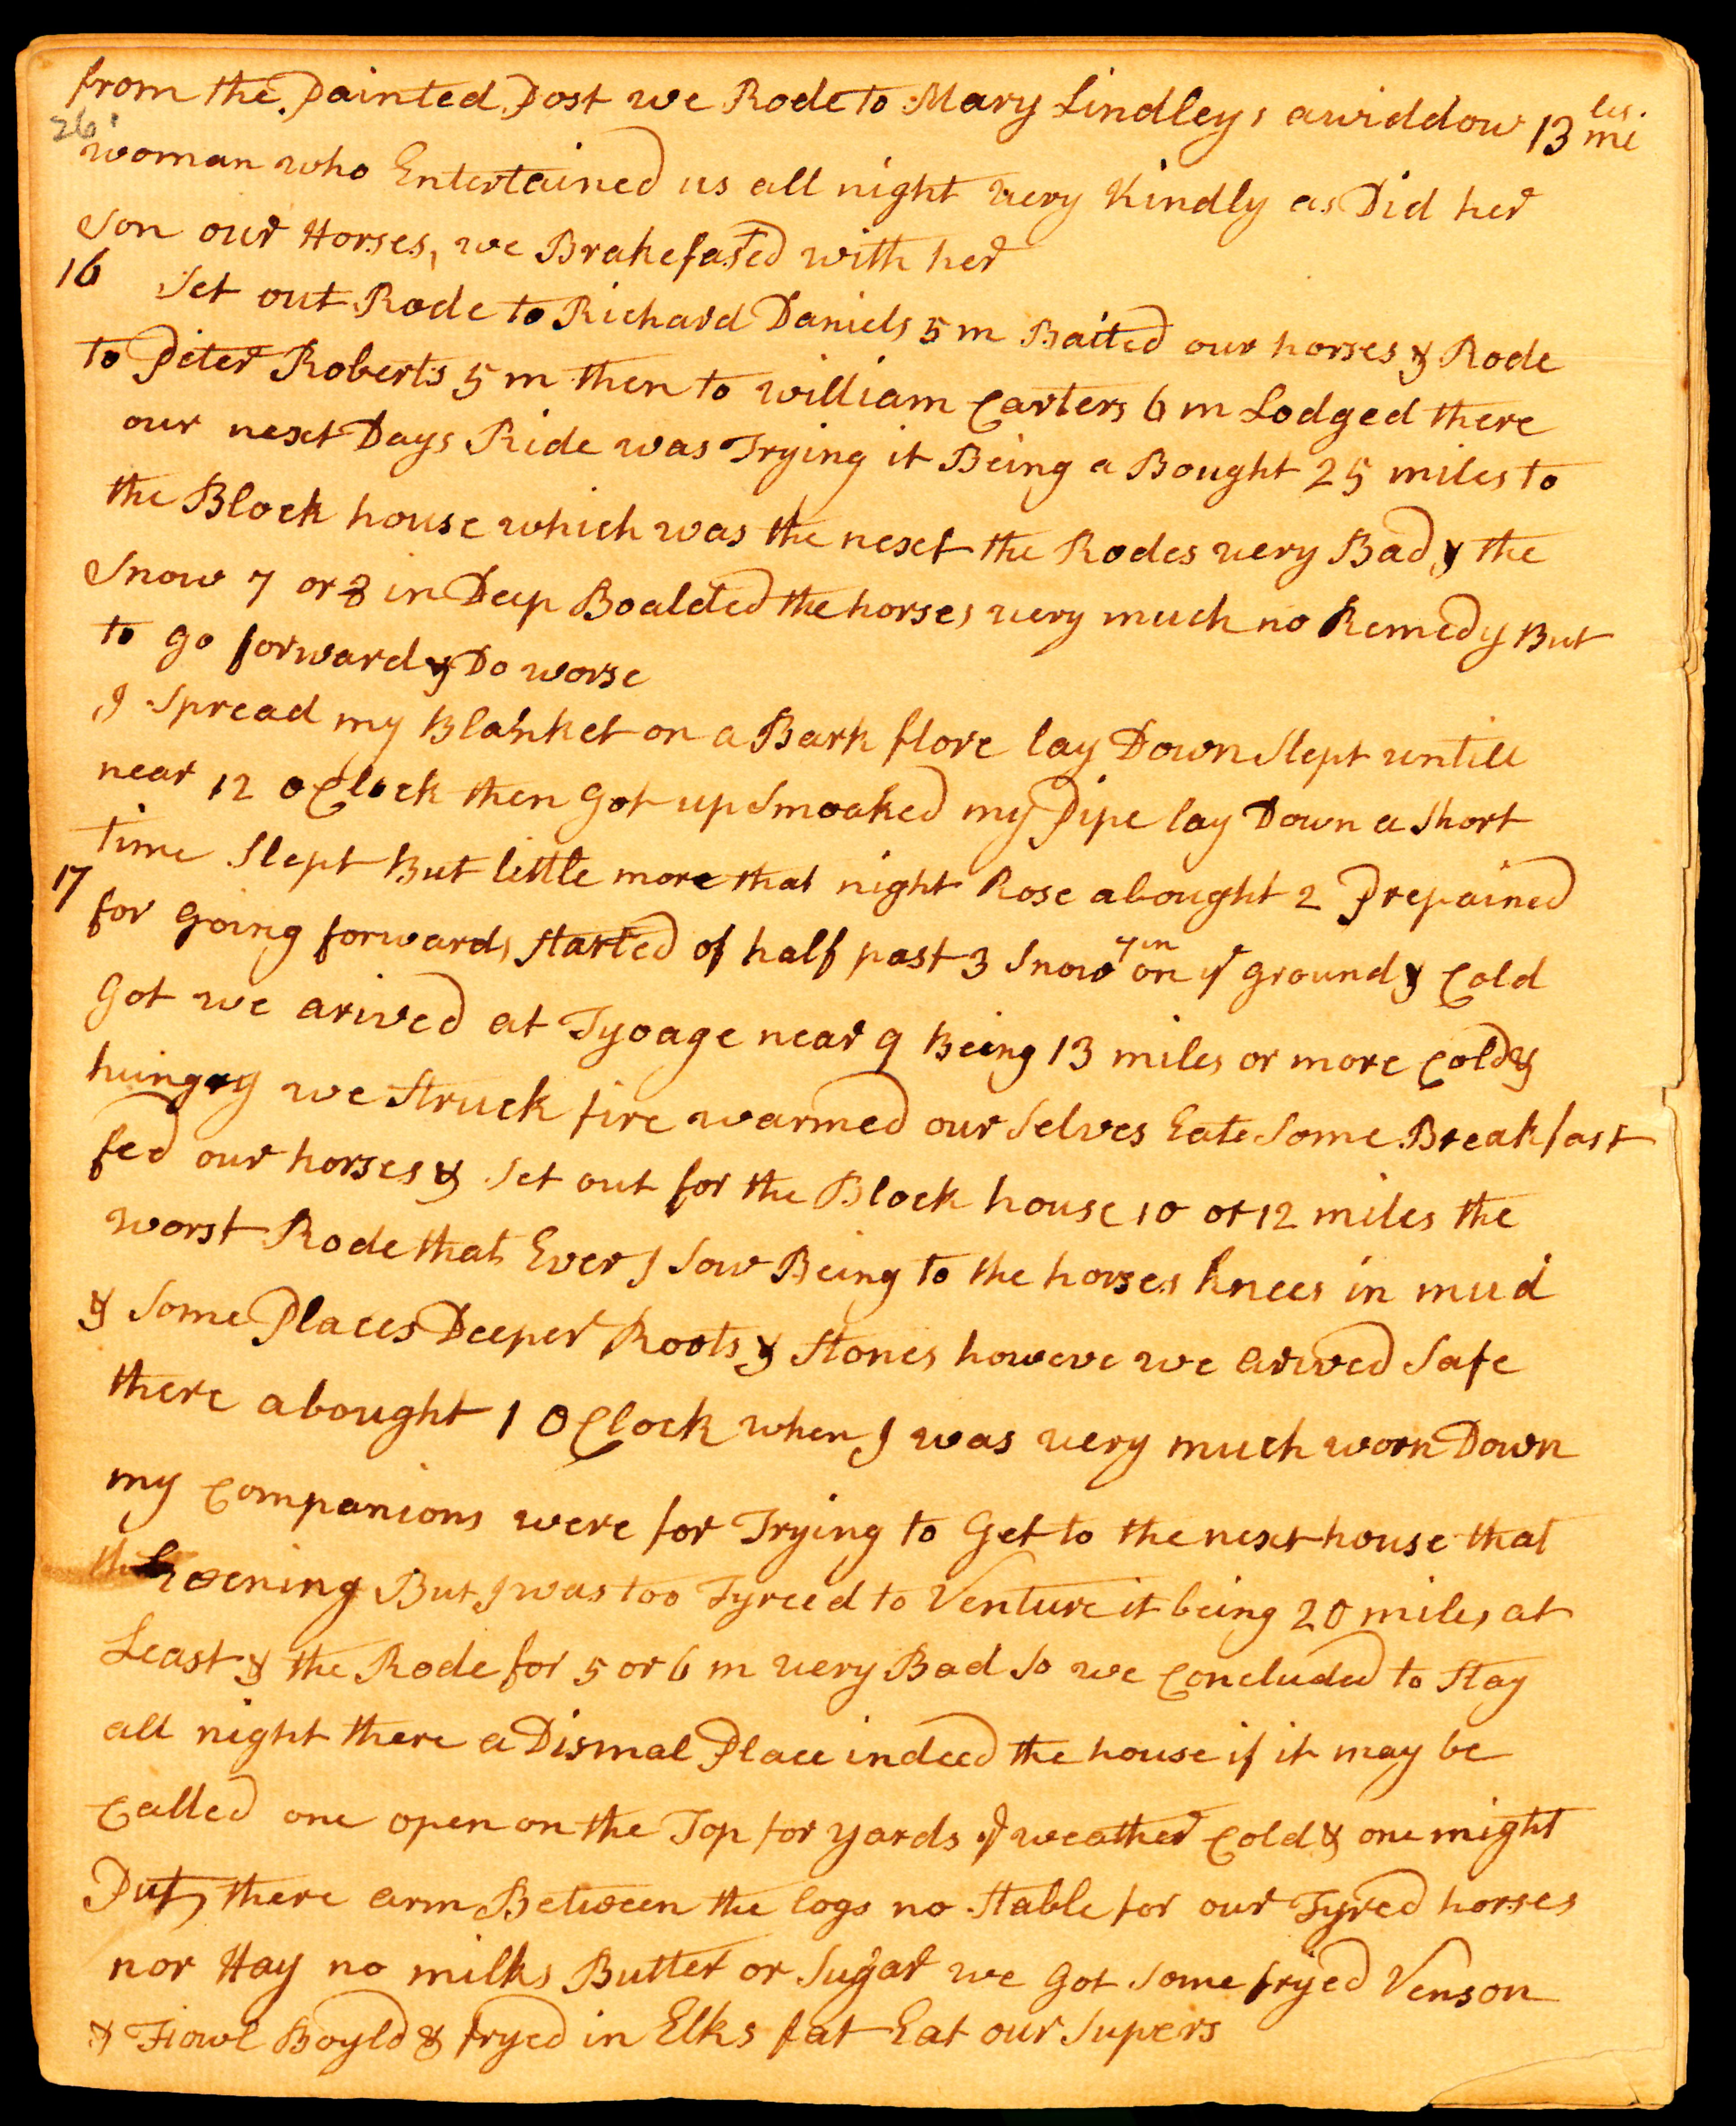 from the Painted Post we Rode to Mary Lindleys a widdow 13 miles
26
woman who Entertained us all night very Kindly as Did her
Son our Horses, we Brakefasted with her
16 Set out Rode to Richard Daniels 5 m Baited our horses & Rode
to Peter Roberts 5 m then to william Carters 6 m Lodged there
our next Days Ride was Trying it Being a Bought 25 miles to
the Block house which was the next the Rodes very Bad & the
Snow 7 or 8 in Deep the horses very much no Remedy But
to go forward & Do worse
I Spread my Blanket on a Bark flore lay Down Slept untill
near 12 OClock then Got up Smoaked my Pipe lay Down a Short
time Slept But little more that night Rose abought 2 Prepaired
17
for Going forwards, Started of half past 3 Snow 7 in on ye ground & Cold
Got we arived at Tyoage near 9 Being 13 miles or more Cold &
hungry we Struck fire warmed our Selves Eate Some Breakfast
fed our horses & Set out for the Block house 10 or 12 miles the
worst Rode that Ever I Saw Being to the horses knees in mud
& Some Places Deeper Roots & Stones howeve we arived Safe
there abought 1 OClock when I was very much worn Down
my Companions were for Trying to Get to the next house that
Evening But I was too Tyreed to Venture it being 20 miles at
Least & the Rode for 5 or 6 m very Bad So we Concluded to Stay
all night there a Dismal Place indeed the house if it may be
Called one open on the Top for yards ye weather Cold & one might
Put there arm Between the logs no Stable for our Tyred horses
nor Hay no milk, Butter or Sugar we Got Some fryed Venson
& Fowl Boyld & fryed in Elks fat Eat our Supers